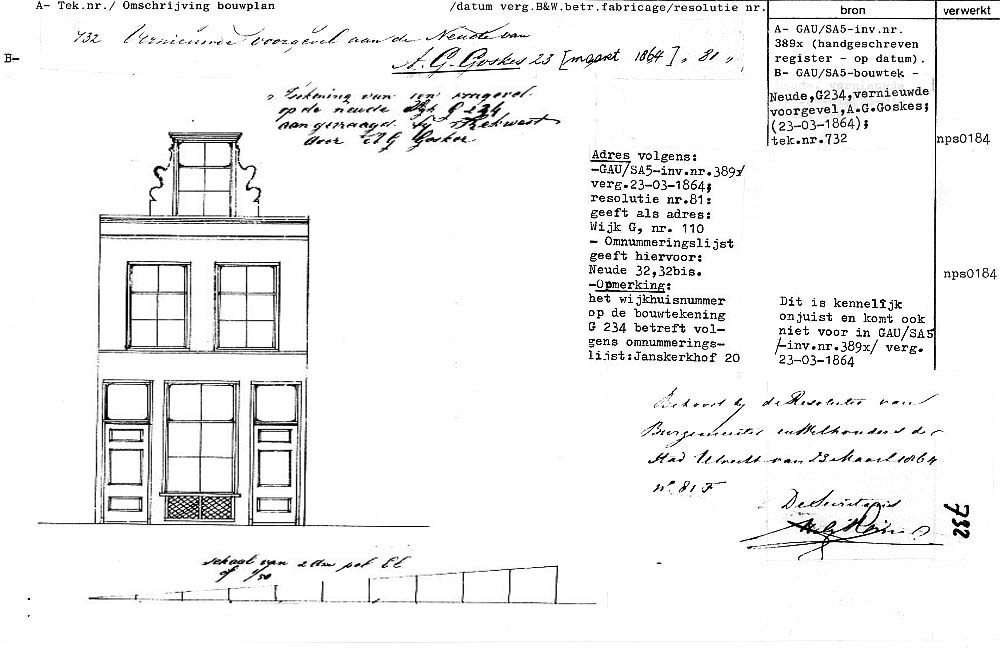 A- Tek.nr./ Omschrijving bouwplan /datum verg.B&W.betr.fabricage/resolutie nr. bron verwerkt
732 Vernieuwde voorgevel aan de Neude van
A. G. Goskes 23 [maart 1864] „ 81 „
B-
A- GAU/SA5-inv.nr.
389x (handgeschreven
register - op datum).
B- GAU/SA5-bouwtek -
Neude,G234,vernieuwde
voorgevel,A.G.Goskes;
(23-03-1864);
tek.nr.732
nps0184
Teekening van een voorgevel
op de neude Wyk G 234
aangevraagd by Rekwest
door A G Goskes
Adres volgens:
-GAU/SA5-inv.nr.389x/
verg.23-03-1864;
resolutie nr.81:
geeft als adres:
Wijk G, nr. 110
- Omnummeringslijst
geeft hiervoor:
Neude 32,32bis.
-Opmerking:
het wijkhuisnummer
op de bouwtekening
G 234 betreft vol-
gens omnummerings-
lijst:Janskerkhof 20
nps0184
Dit is kennelijk
onjuist en komt ook
niet voor in GAU/SA5
/-inv.nr.389x/ verg.
23-03-1864
Behoort by de Resolutie van
Burgemeester en Wethouders der
Stad Utrecht van 23 Maart 1864
No. 81 F
De Secretaris
732
schaal van 2 dm pel El
of 1/50